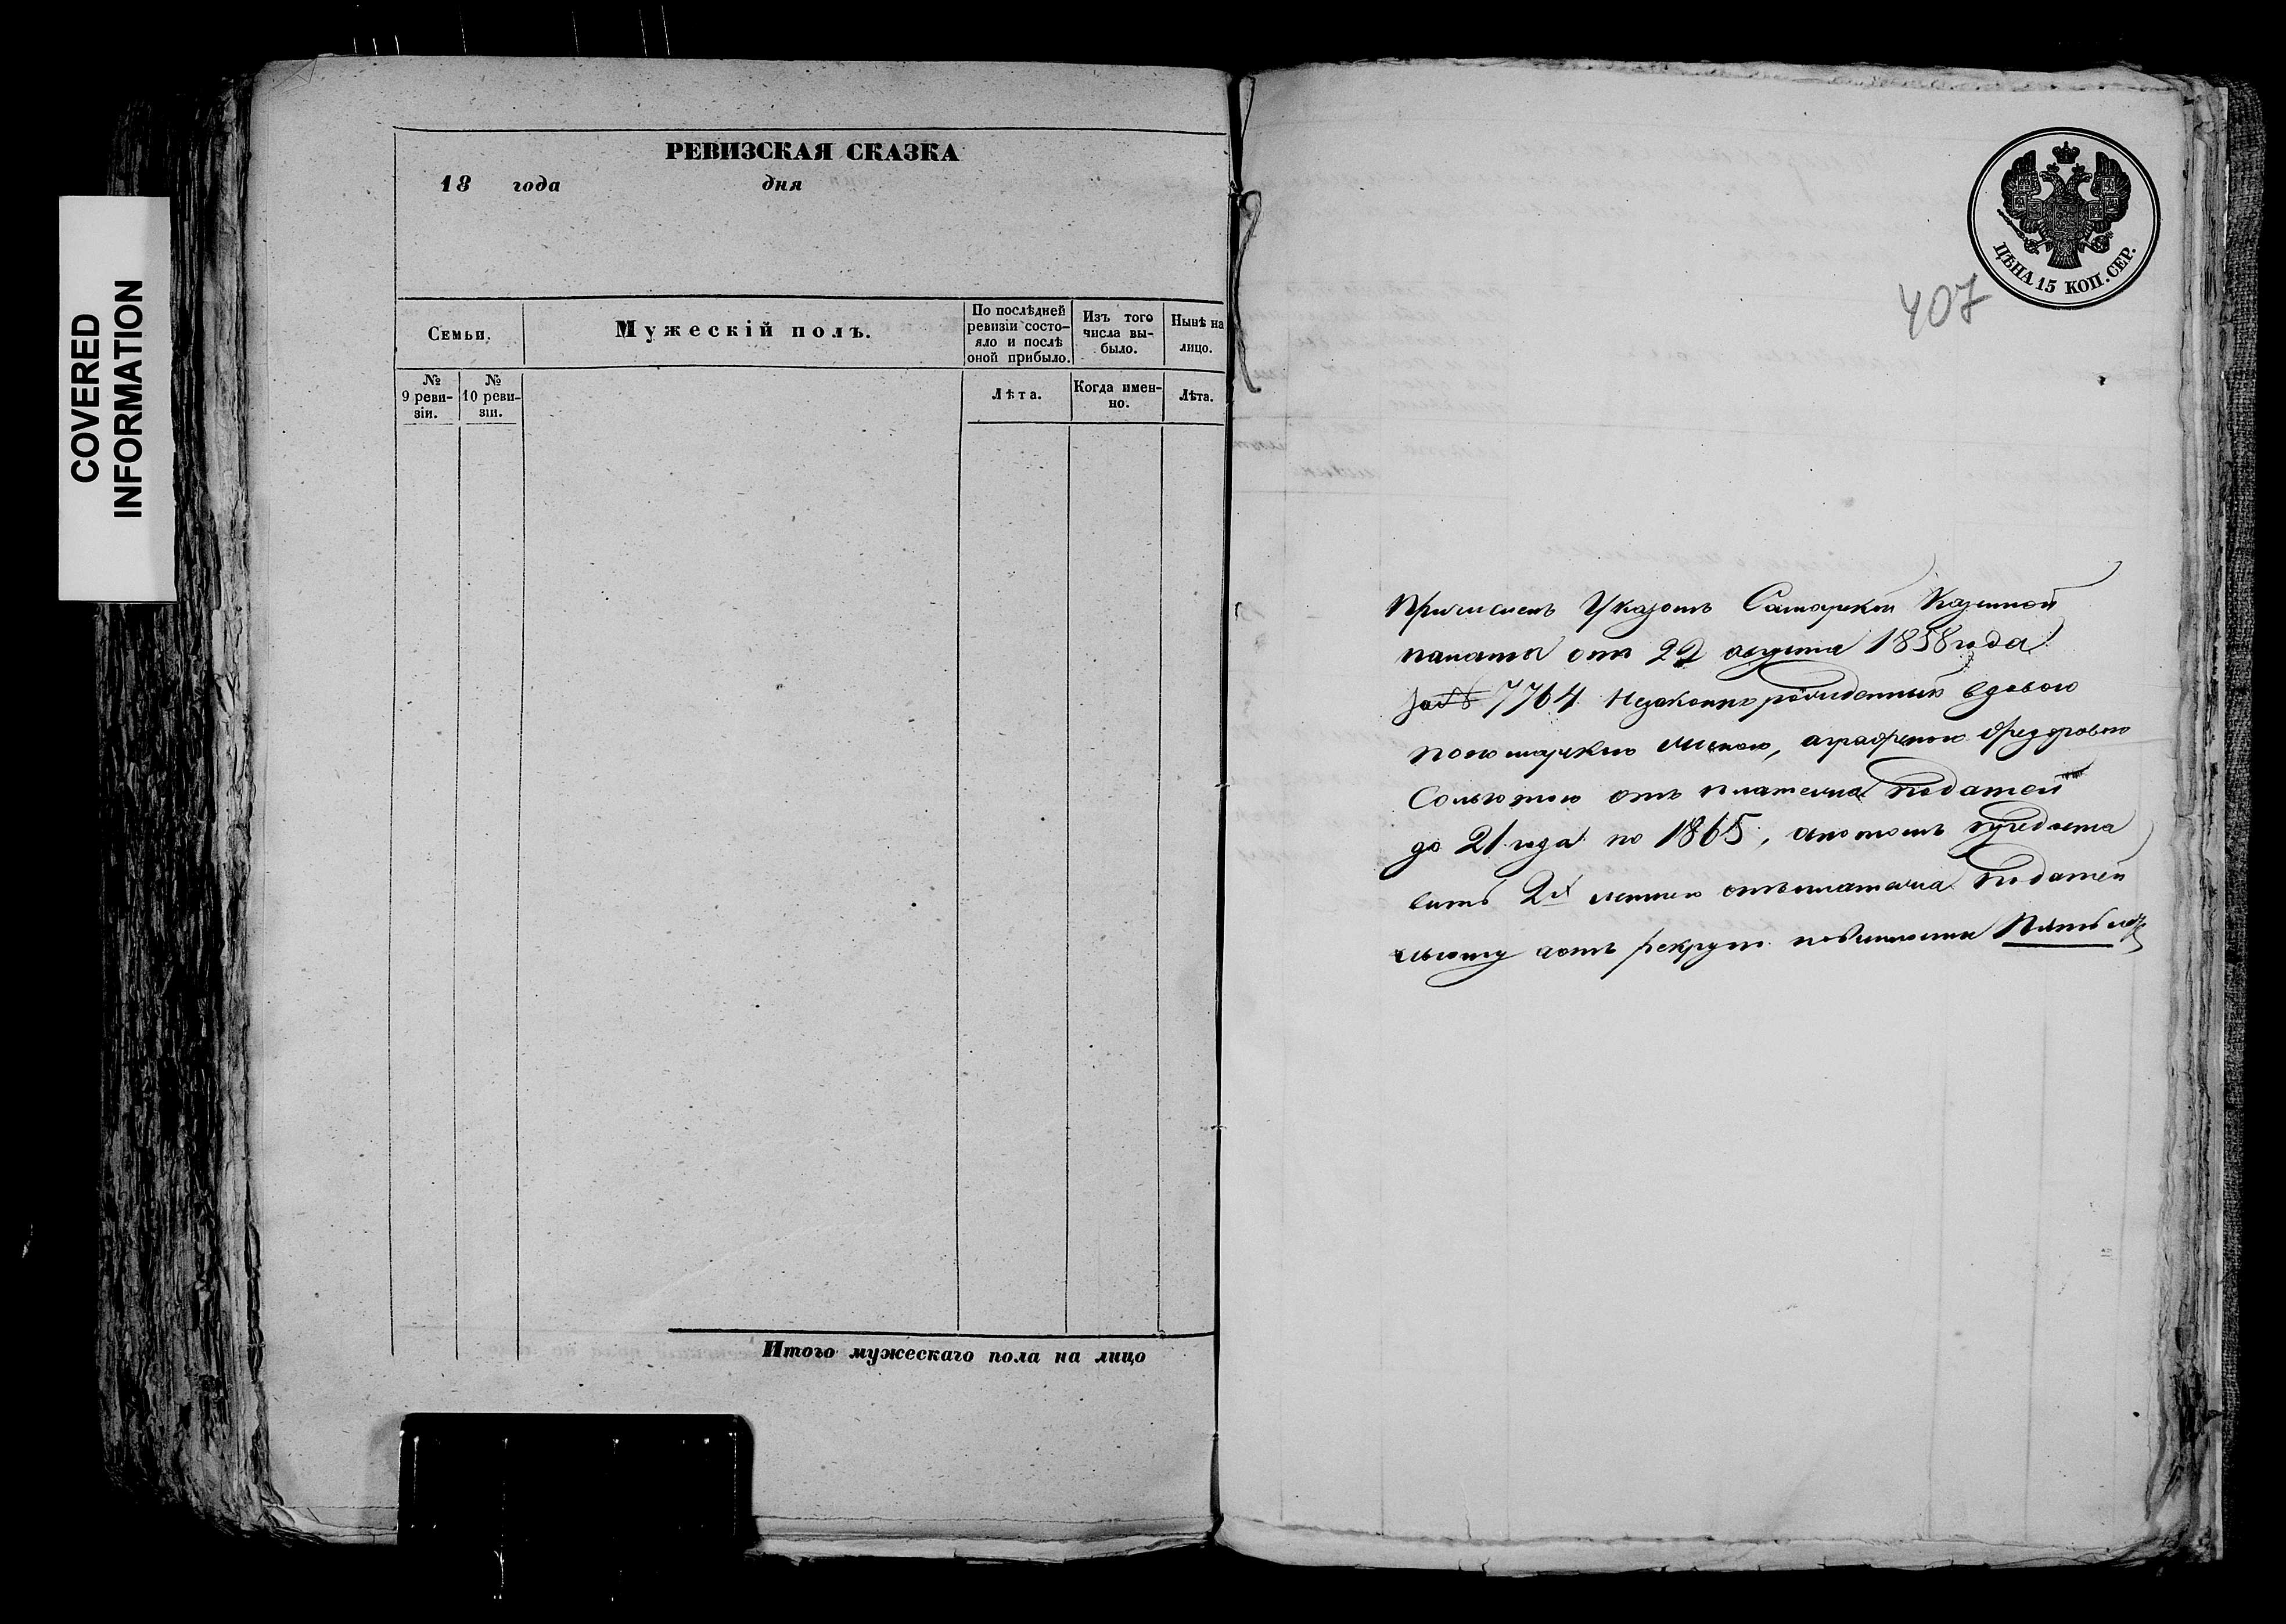 COVERED
INFORMATION
РЕВИЗСКАЯ СКАЗКА
18 года дня
Семьи.
Мужескій полъ.
По послѣдней
ревизіи состо-
яло и послѣ
оной прибыло.
Изъ того
числа вы-
было.
Нынѣ на
лицо.
№
9 реви-
зіи.
№
10 реви-
зіи.
Лѣта.
Когда имен-
но.
Лѣта.
Итого мужескаго пола на лицо
ЦѢНА 15 КОП. СЕР.
407
Причисленъ Указомъ Самарской Казенной
палаты отъ 22 августа 1858 года
за № 7764 Незаконнорожденный вдовою
аграфеною Федоровою
отъ платежа податей
до 21 года по 1865, а потомъ
2х отъ платежа податей
льготу а отъ рекрут повинности Пять